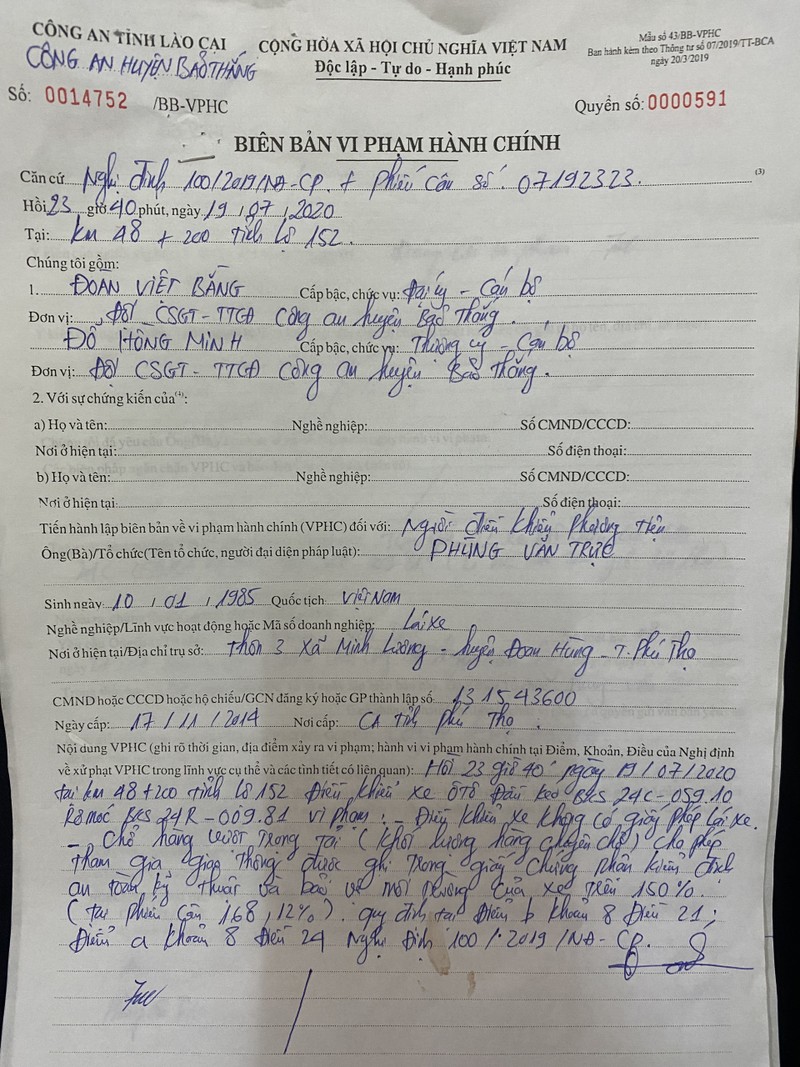 CÔNG AN TỈNH LÀO CAI
CÔNG AN HUYỆN BẢO THẮNG
Số: 0014752 /BB-VPHC
CỘNG HÒA XÃ HỘI CHỦ NGHĨA VIỆT NAM
Độc lập - Tự do - Hạnh phúc
Mẫu số 43/BB-VPHC
Ban hành kèm theo Thông tư số 07/2019/TT-BCA
ngày 20/3/2019
Quyển số: 0000591
BIÊN BẢN VI PHẠM HÀNH CHÍNH
Căn cứ Nghị định 100/2019/NĐ-CP. + phiếu cân số: 07192323. (3)
Hồi 23 giờ 40 phút, ngày 19/07/2020
Tại: km 48 + 200 tỉnh lộ 152.
Chúng tôi gồm:
1. ĐOÀN VIẾT BẰNG Cấp bậc, chức vụ: Đại úy - Cán bộ
Đơn vị: Đội CSGT - TTGĐ Công an huyện Bảo Thắng.
ĐỖ HỒNG MINH Cấp bậc, chức vụ: Thượng úy - Cán bộ
Đơn vị: Đội CSGT - TTGĐ Công an huyện Bảo Thắng.
2. Với sự chứng kiến của(4):
a) Họ và tên: Nghề nghiệp: Số CMND/CCCD:
Nơi ở hiện tại: Số điện thoại:
b) Họ và tên: Nghề nghiệp: Số CMND/CCCD:
Nơi ở hiện tại: Số điện thoại:
Tiến hành lập biên bản về vi phạm hành chính (VPHC) đối với: Người điều khiển phương tiện
Ông(Bà)/Tổ chức(Tên tổ chức, người đại diện pháp luật): PHÙNG VĂN TRỰC
Sinh ngày: 10/01/1985 Quốc tịch Việt NAM
Nghề nghiệp/Lĩnh vực hoạt động hoặc Mã số doanh nghiệp: Lái xe
Nơi ở hiện tại/Địa chỉ trụ sở: Thôn 3 xã Minh Lương - huyện Đoan Hùng - T. Phú Thọ
CMND hoặc CCCD hoặc hộ chiếu/GCN đăng ký hoặc GP thành lập số 131543600
Ngày cấp: 17/11/2014 Nơi cấp: CA tỉnh Phú Thọ.
Nội dung VPHC (ghi rõ thời gian, địa điểm xảy ra vi phạm; hành vi vi phạm hành chính tại Điểm, Khoản, Điều của Nghị định
về xử phạt VPHC trong lĩnh vực cụ thể và các tình tiết có liên quan): Hồi 23 giờ 40' ngày 19/07/2020
tại km 48+200 tỉnh lộ 152 Điều khiển xe ô tô Đầu kéo BKS 24C-059.10
Rơ moóc BKS 24R-009.81 vi phạm: - Điều khiển xe không có giấy phép lái xe.
- Chở hàng vượt trọng tải (khối lượng hàng chuyên chở) cho phép
tham gia giao thông được ghi trong giấy chứng nhận kiểm định
an toàn kỹ thuật và bảo vệ môi trường của xe trên 150%.
(tại phiếu cân 168,12%). quy định tại điểm b khoản 8 Điều 21;
Điểm a khoản 8 điều 24 Nghị Định 100/2019/NĐ-CP.